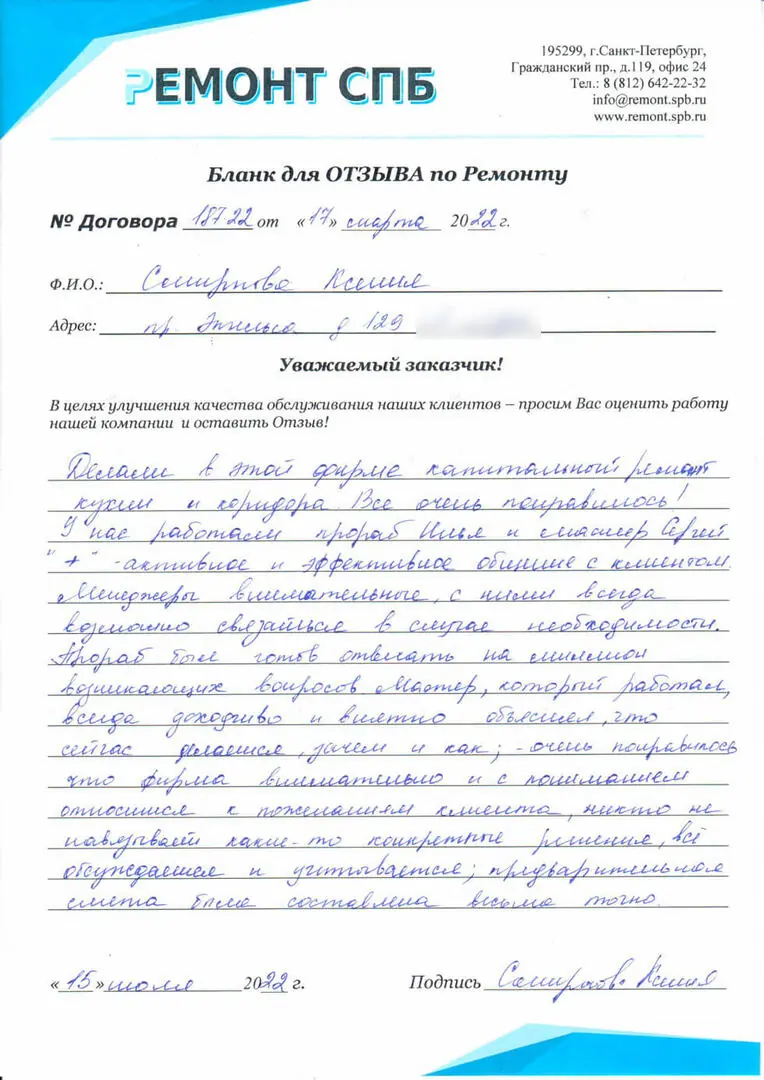 РЕМОНТ СПБ
195299, г.Санкт-Петербург,
Гражданский пр., д.119, офис 24
Тел.: 8 (812) 642-22-32
info@remont.spb.ru
www.remont.spb.ru
Бланк для ОТЗЫВА по Ремонту
№ Договора 18722 от «17» марта 2022 г.
Ф.И.О.: Смирнова Ксения
Адрес: пр. Энгельса д 129
Уважаемый заказчик!
В целях улучшения качества обслуживания наших клиентов – просим Вас оценить работу
нашей компании и оставить Отзыв!
Делали в этой фирме капитальный ремонт
кухни и коридора. Все очень понравилось!
У нас работали прораб Илья и мастер Сергей
"+" - активное и эффективное общение с клиентом.
Менеджеры внимательные, с ними всегда
возможно связаться в случае необходимости.
Прораб был готов отвечать на миллион
возникающих вопросов. Мастер, который работал,
всегда доходчиво и внятно объяснял, что
сейчас делается, зачем и как; - очень понравилось
что фирма внимательно и с пониманием
относится к пожеланиям клиента, никто не
навязывает какие-то конкретные решения, всё
обсуждается и учитывается; предварительная
смета была составлена весьма точно.
«15» июля 2022 г. Подпись Смирнова Ксения